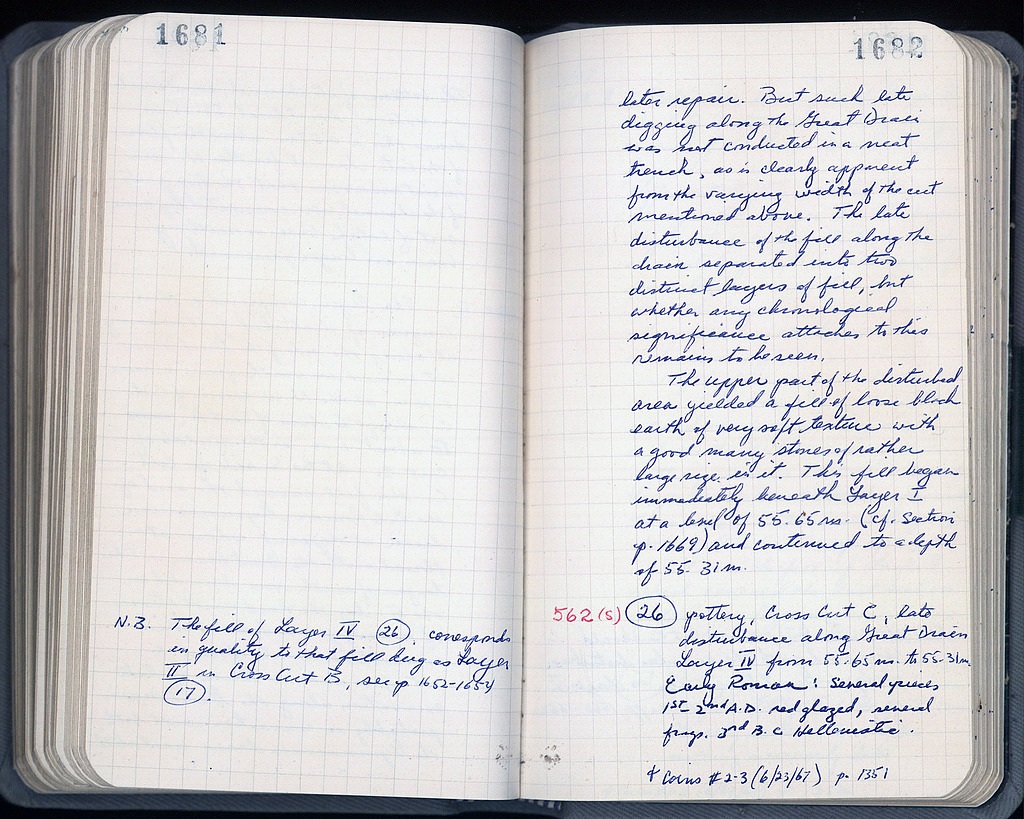 1681
N.B. The fill of Layer IV, (26), corresponds
in quality to that fill dug as Layer
II in Cross Cut B, see p. 1652-1654
(17).
1682
later repair. But such late
digging along the Great Drain
was not conducted in a neat
trench, as is clearly apparent
from the varying width of the cut
mentioned above. The late
disturbance of the fill along the
drain separated into two
distinct layers of fill, but
whether any chronological
significance attaches to this
remains to be seen.
The upper part of the disturbed
area yielded a fill of loose black
earth of very soft texture with
a good many stones of rather
large size in it. This fill began
immediately beneath Layer I
at a level of 55.65 m. (cf. Section
p. 1669) and continued to a depth
of 55.31 m.
562(s) (26) pottery, Cross Cut C, late
disturbance along Great Drain
Layer IV from 55.65 m. to 55.31 m.
Early Roman: Several pieces
1st-2nd A.D. red glazed, several
frags. 3rd B.C. Hellenistic.
+ Coins #2-3 (6/23/67) p. 1351